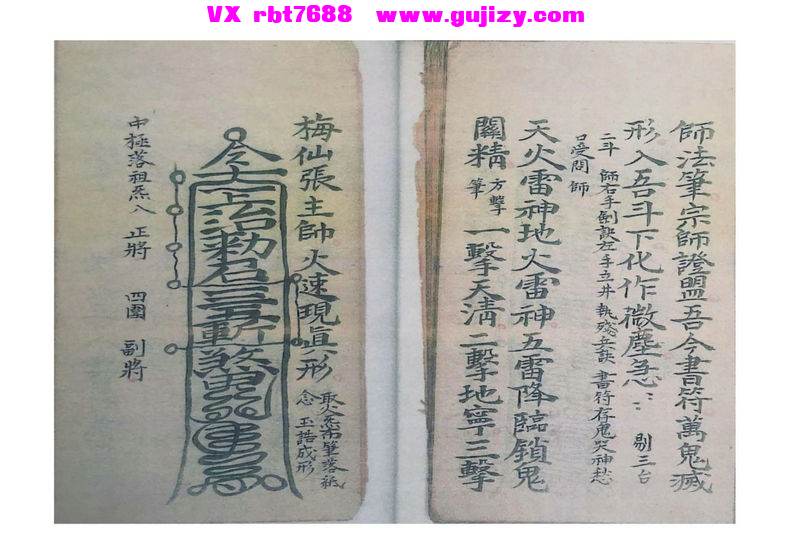 VX rbt7688 www.gujizy.com
師法筆宗師證盟吾今書符萬鬼滅
形入吾斗下化作微塵急〻 剔三台
二斗 師右手劍訣左手立井 執殘 訣 書符存鬼哭神愁
口受問師
天火雷神地火雷神五雷降臨鎖鬼
關精 方擊筆 一擊天淸二擊地寧三擊
梅仙張主帥火速現真形 取火炁 筆落紙
念 玉誥成形
令
治勅 君三五斬煞
中極落祖炁入 正將 四圍 副將